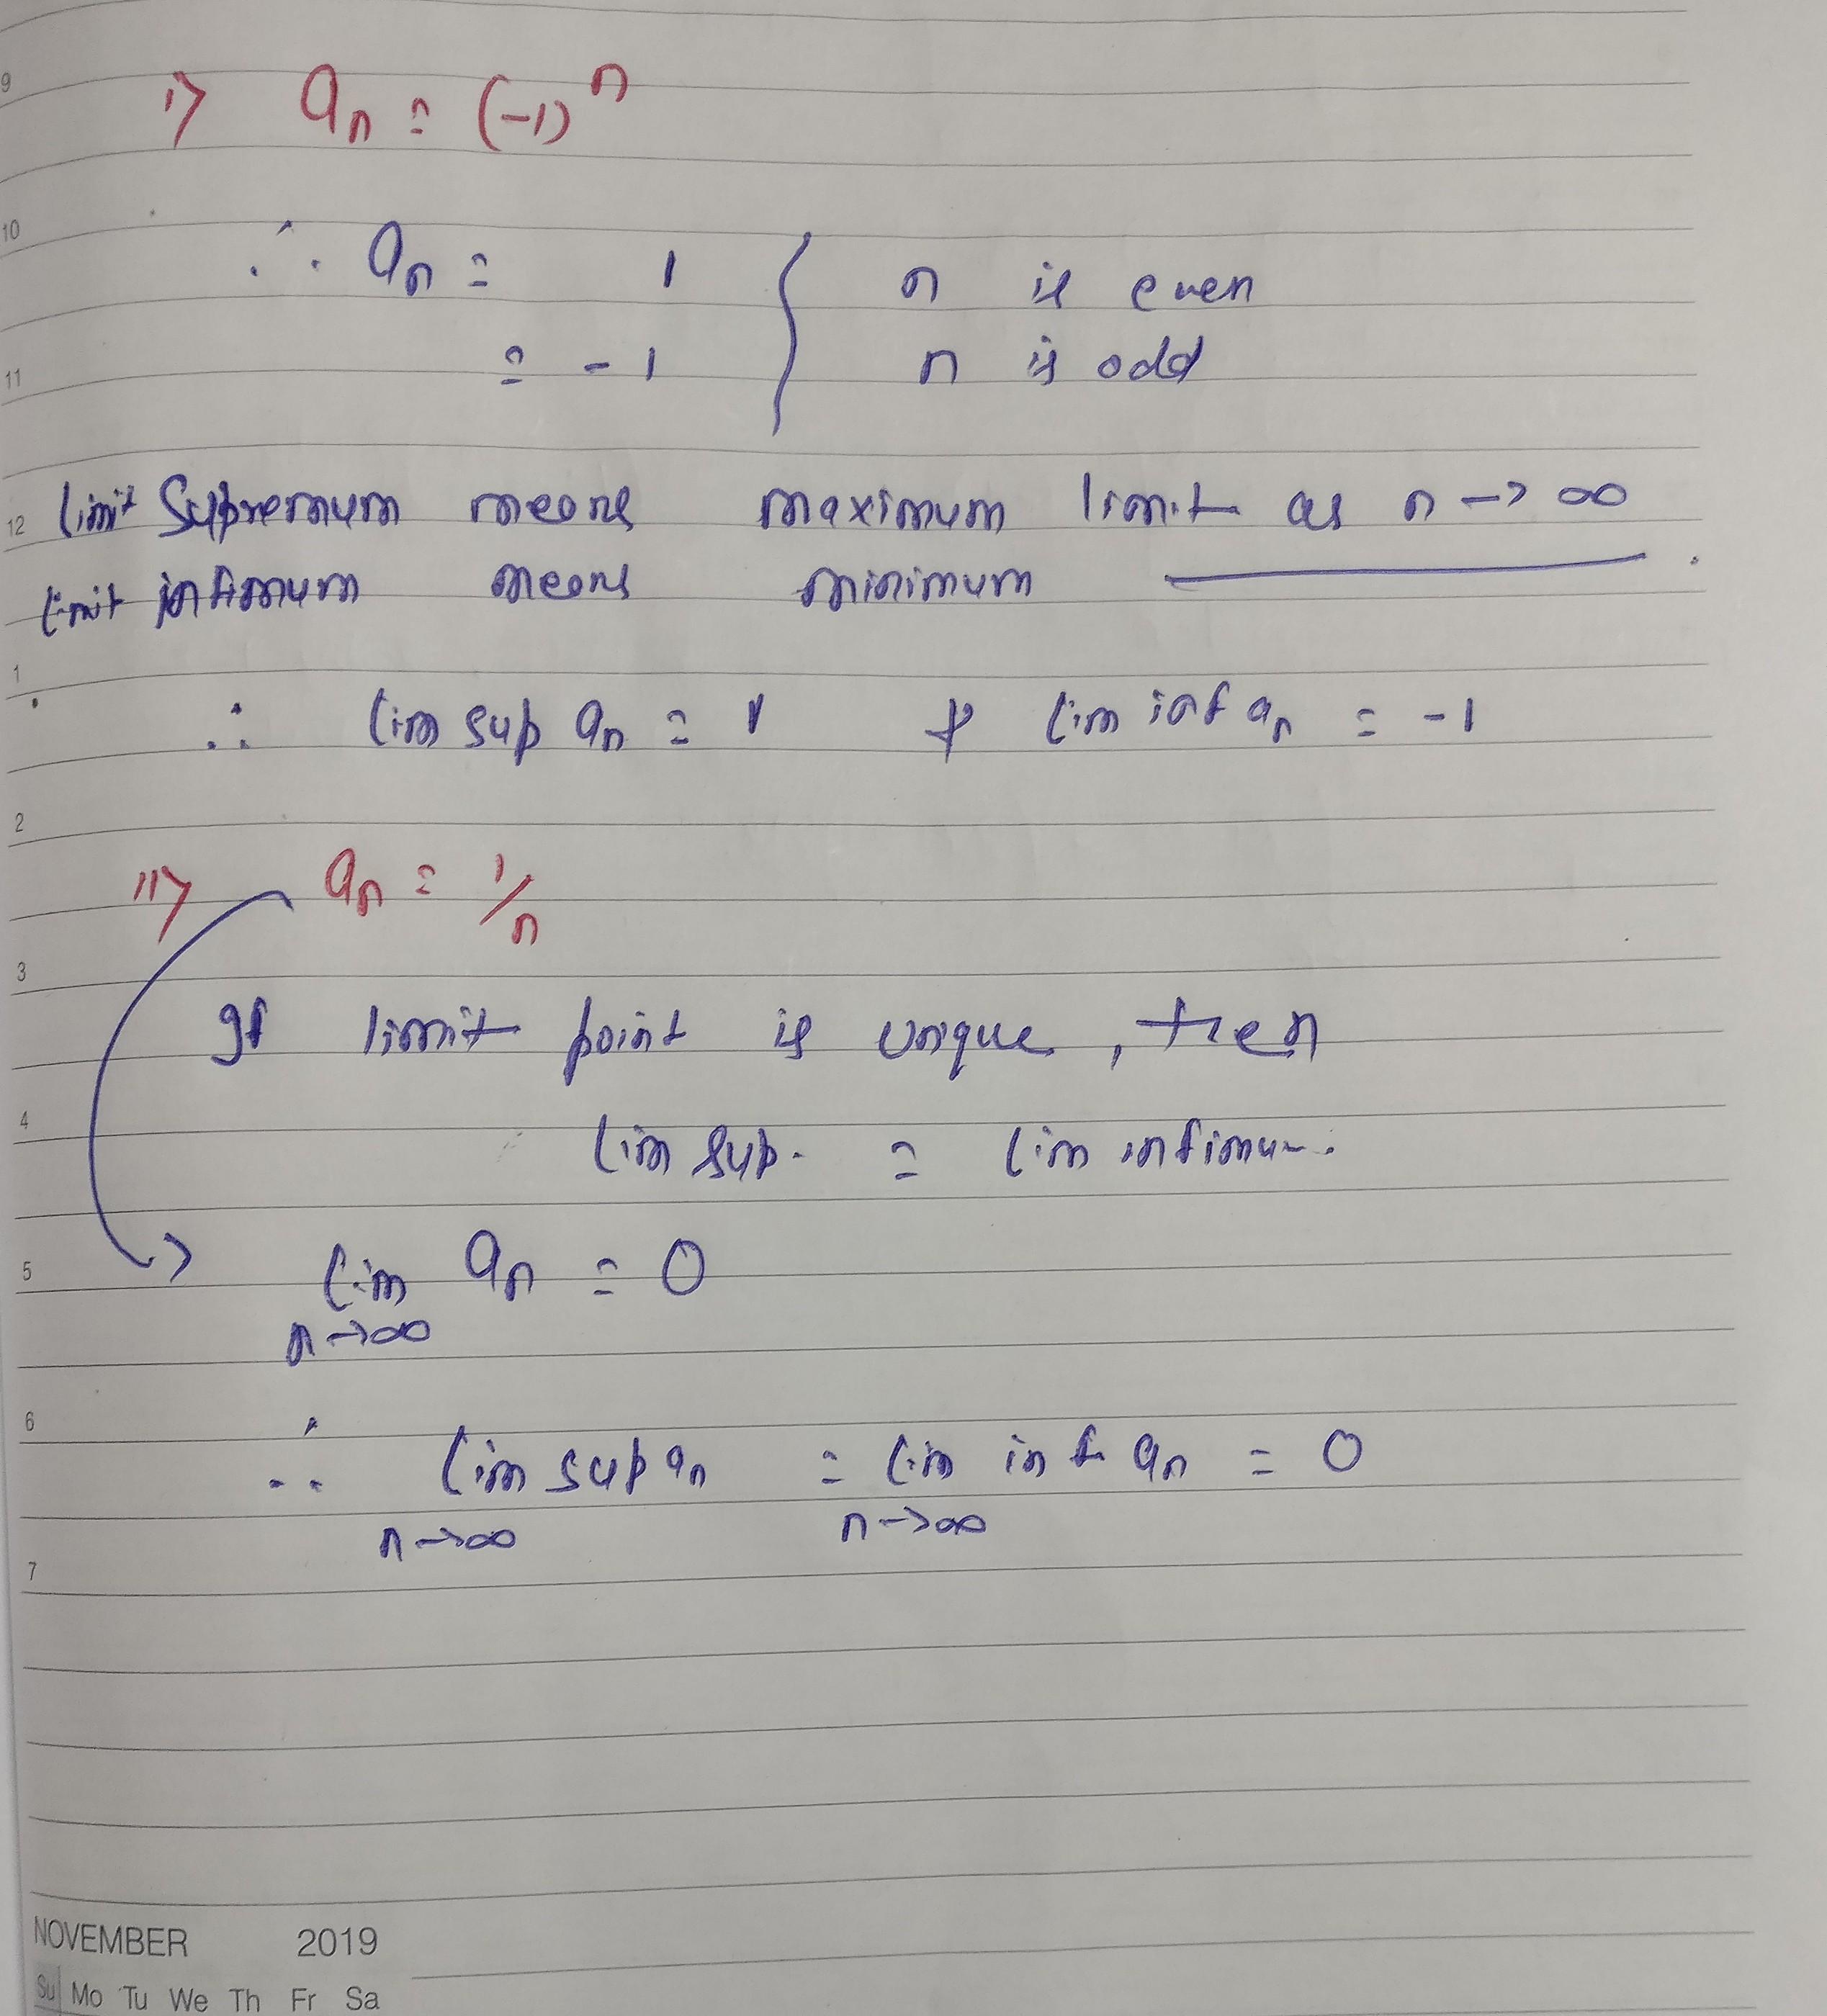 9
i> aₙ = (-1)ⁿ
10
∴ aₙ = 1 { n is even
11
= -1 n is odd
12 limit Supremum means maximum limit as n → ∞
limit infimum means minimum ———.
1
∴ lim sup aₙ = 1 & lim inf aₙ = -1
2
ii> aₙ = 1/n
3
If limit point is unique, then
4
lim sup. = lim infimum.
5
lim aₙ = 0
n→∞
6
∴ lim sup aₙ = lim inf aₙ = 0
n→∞ n→∞
7
NOVEMBER 2019
Su Mo Tu We Th Fr Sa